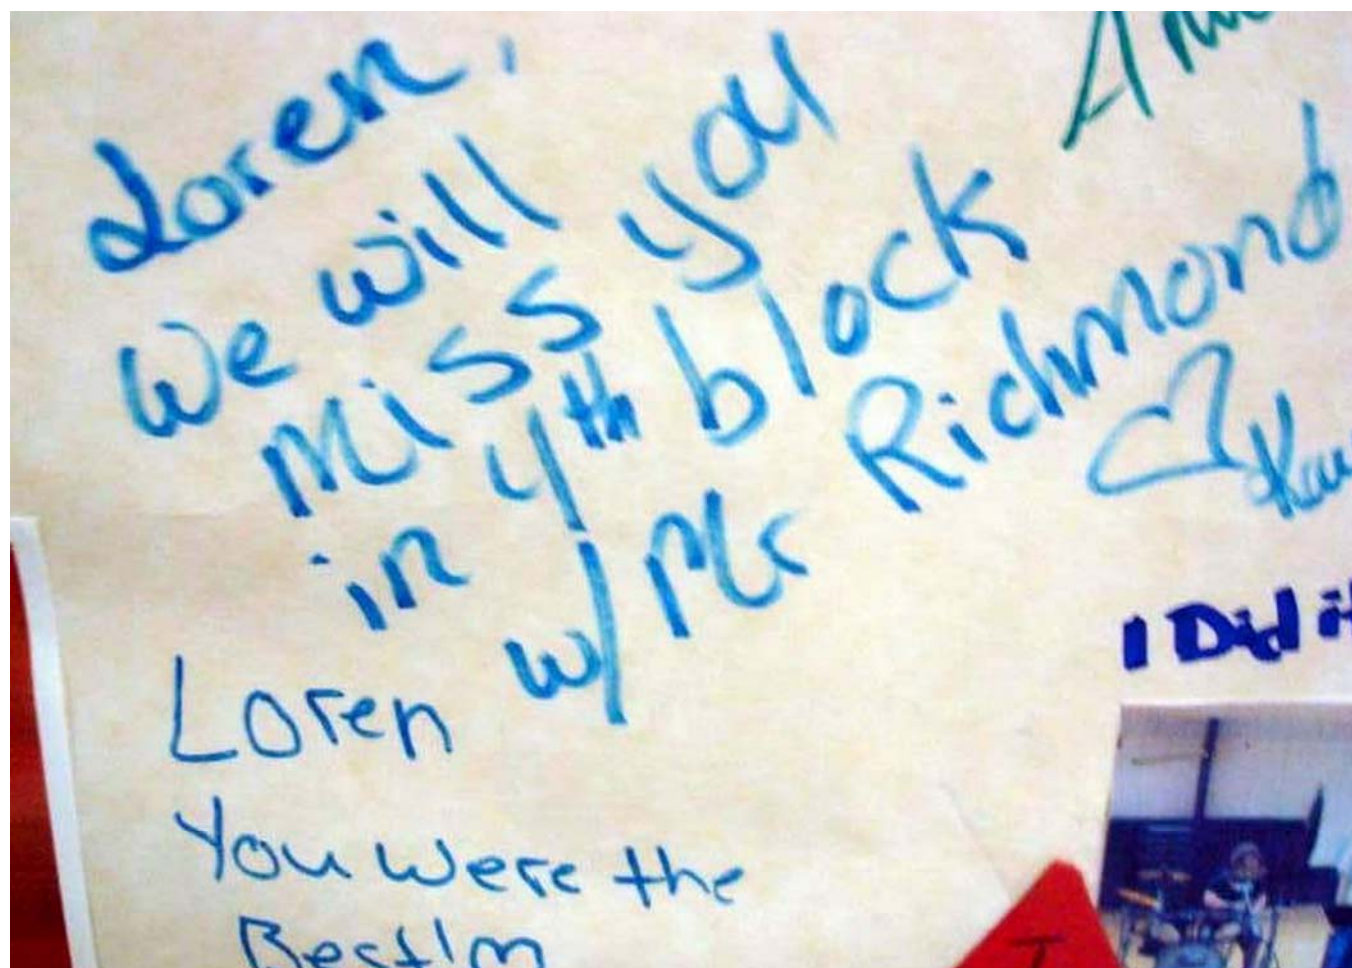 Loren,
We will
miss you
in 4th block
w/ Mr Richmond
I Did it
Loren
You were the
Best Im
I